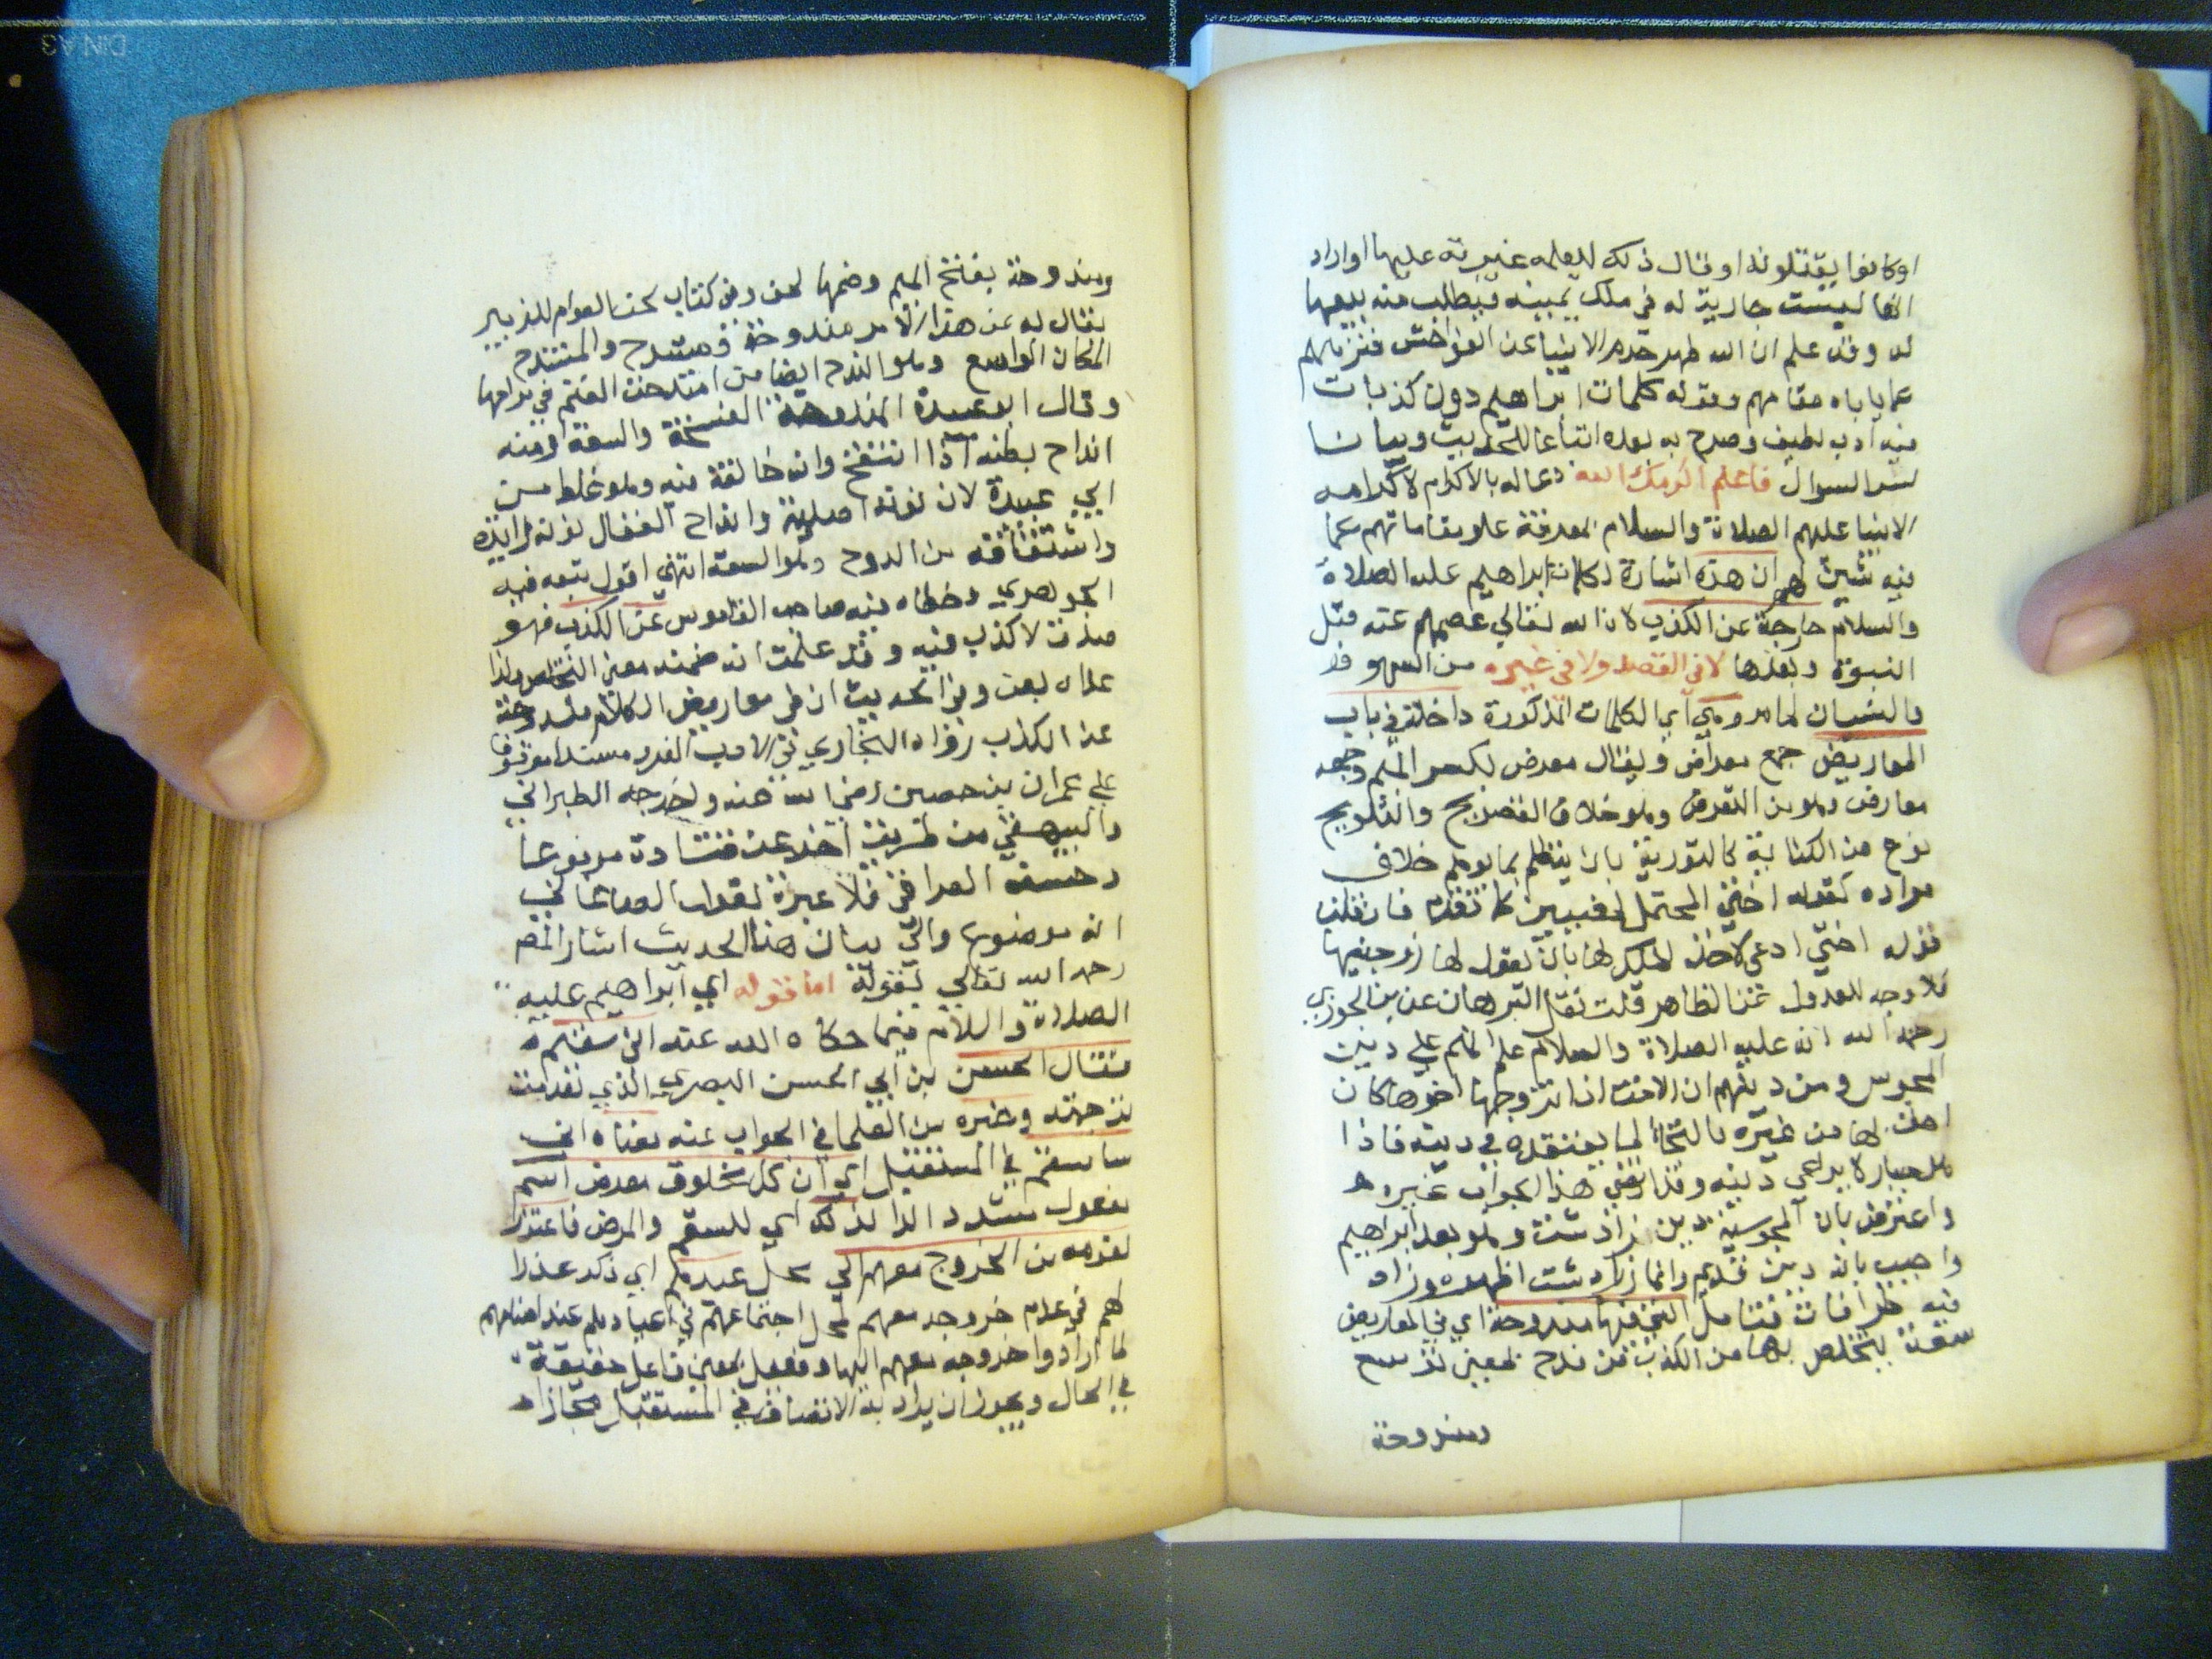 او كانوا يقتلونه او قال ذلك ليعلمه غيرته عليها او اراد
انها ليست جارية له في ملك يمينه فيطلب منه بيعها
له وقد علم ان الله طهر حرم الانبيا عن الفواحش فنزههم
عما ياباه مقامهم وقوله كلمات ابراهيم دون كذبات
فيه ادب لطيف وصرح به بعده اتباعا للحديث وبيانا
لسر السوال فاعلم اكرمك الله دعا له بالاكرام لاكرامه
الانبيا عليهم الصلاة والسلام بمعرفة علو مقاماتهم عما
فيه شين لهم ان هذه اشارة لكلمات ابراهيم عليه الصلاة
والسلام خارجة عن الكذب لان الله تعالي عصمهم عنه قبل
النبوة وبعدها لا في القصد ولا في غيره من السهو
والنسيان لما مر وهي اي الكلمات المذكورة داخلة في باب
المعاريض جمع معراض ويقال معرض بكسر الميم وجمعه
معارض وهو من التعرض وهو خلاف التصريح والتلويح
نوع من الكناية كالتورية بان ينظم بما يوهم خلاف
مراده كقوله اختي المحتمل لمعنيين كما تقدم فان قلت
قوله اختي ادعي لاخذ الملك لها بان يقول لها زوجنيها
فلا وجه للعدول عن الظاهر قلت نقل البرهان عن بن الجوزي
رحمه الله انه عليه الصلاة والسلام علم انهم علي دين
المجوس ومن دينهم ان الاخت اذا تزوجها اخوها كان
احق بها من غيره فالتجا لما يعتقده في دينه فاذا
هو جبار لا يراعي دينه وقد ارتضي هذا الجواب غيره
واعترض بان المجوسية دين زرادشت وهو بعد ابراهيم
واجيب بانه دين قديم وانما زرادشت اظهره وزاد
فيه خرافات فتامل التي فيها مندوحة اي في المعاريض
سعة يتخلص بها من الكذب من ندح بمعني توسع
ومندوحة
ومندوحة بفتح الميم وضمها لحن وفي كتاب لحن العوام للزبيدي
يقال له عن هذا الامر مندوحة ومنتدح والمنتدح
المكان الواسع وهو الندح ايضا من امتدحت الغنم في مرابضها
وقال ابو عبيدة المندوحة الفسحة والسعة ومنه
انداح بطنه اذا انتفخ وانداح لغة فيه وهو غلط من
ابي عبيدة لان نونه اصلية وانداح انفعال نونه زايدة
واشتقاقه من الدوح وهو السعة انتهي اقول تبعه فيه
الجوهري وخطاه فيه صاحب القاموس عن الكذب فهو
صدق لا كذب فيه وقد علمت انه ضمنه معني التخلص ولذا
عداه بعن وفي الحديث ان في معاريض الكلام مندوحة
عن الكذب رواه البخاري في الادب المفرد مسندا موقوفا
علي عمران بن حصين رضي الله عنه واخرجه الطبراني
والبيهقي من طريق اخر عن قتادة مرفوعا
وحسنه العراقي فلا عبرة لقول الصاغاني
انه موضوع والي بيان هذا الحديث اشار المص
رحمه الله تعالي بقوله اما قوله اي ابراهيم عليه
الصلاة والسلام فيما حكاه الله عنه اني سقيم
فقال الحسن بن ابي الحسن البصري الذي تقدمت
ترجمته وغيره من العلما في الجواب عنه معناه اني
ساسقم في المستقبل اي ان كل مخلوق معرض اسم
مفعول مشدد الرا لذلك اي للسقم والمرض فاعتذر
لقومه من الخروج معهم الي محل عيدهم اي ذكر عذرا
لهم في عدم خروجه معهم لمحل اجتماعهم في اعيادهم عند اصنامهم
لما ارادوا خروجه معهم اليها وفعيل بمعني فاعل حقيقة
في الحال ويجوز ان يراد به الاتصاف في المستقبل مجازا